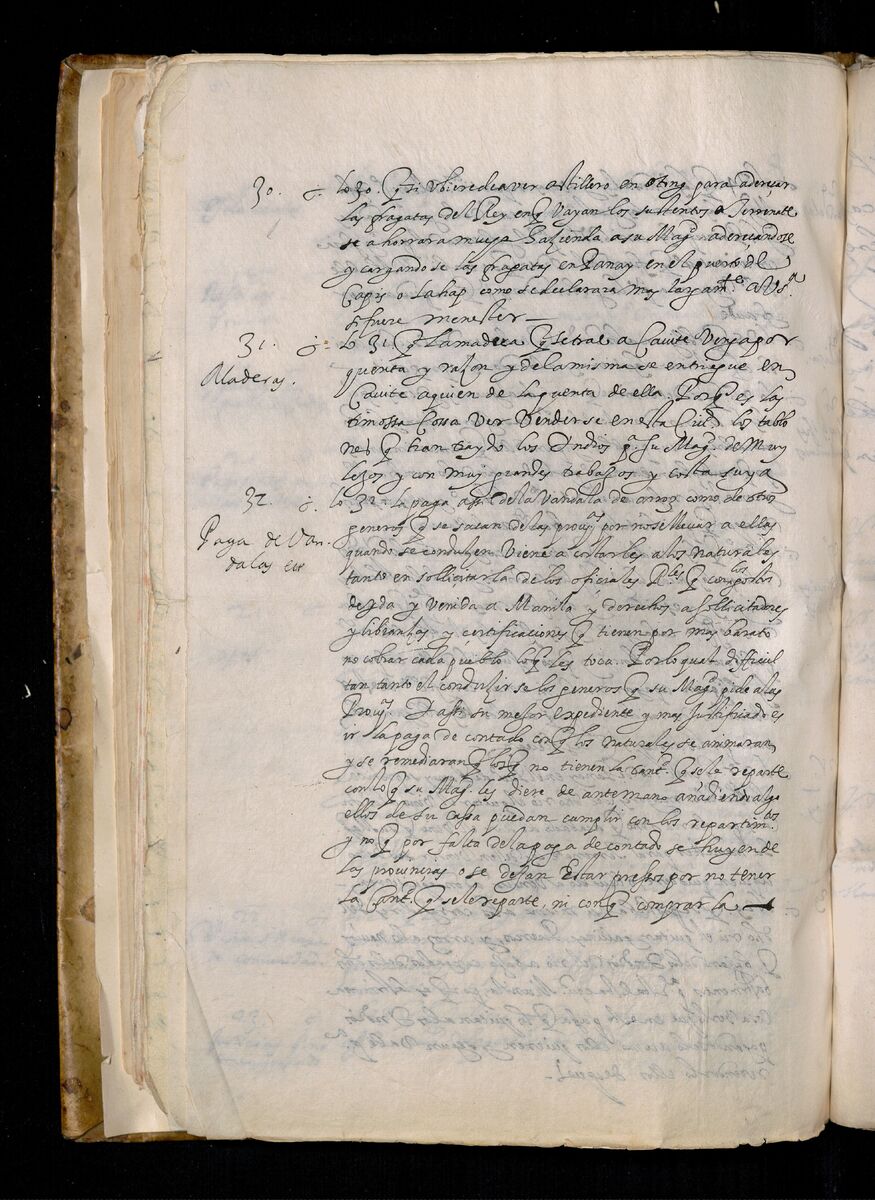 30. lo 30. q̃ si ubiere de aver astillero en oton para aderesar
las fragatas del Rey en q̃ vayan los sustentos a Terrenate
se ahorrara mucha hazienda a su Magᵈ. aderecandose
y cargandose las fragatas en Panay en el puerto del
Capis o lahap como se declarara mas largamᵗᵉ. a Vsᵃ.
si fuere menester —
31. lo 31. q̃ la madera q̃ se trae a Cavite venga por
Maderas.
quenta y razon y de la misma se entregue en
Cavite a quien de la quenta de ella. Porq̃ es las
timossa Cossa ver venderse en esta Ciuᵈ los tablo
nes q̃ trahido los Indios pᵃ su Magᵈ. de muy
lexos y con muy grandes trabaxos y costa suya
32. lo 32. la paga assi de la vandala de arroz como de otros
Paga de Van-
dalas etc
generos q̃ se sacan de las provᵃˢ por no se llevar a ellas
quando se conduzen viene a costarles a los naturales
tanto en sollicitarla de los oficiales Rˡᵉˢ q̃ con los costos
de yda y venida a Manila y derechos a sollicitadores
y libranzas y certificaciones q̃ tienen por mas barato
no cobrar cada pueblo lo q̃ les toca. Por lo qual dificul
tan tanto el conduzirse los generos q̃ su Magᵈ pide a las
Provᵃˢ. Y assi su mejor expediente y mas justificado es
ir la paga de contado con q̃ los naturales se animaran
y se remediaran q̃ los q̃ no tienen la cantᵈ. q̃ se le reparte
con lo q̃ su Magᵈ. les diere de antemano añadiendo algo
ellos de su cassa puedan cumplir con los repartimᵗᵒˢ
y no q̃ por falta de la paga de contado se huyen de
las provincias o se dejan estar pressos por no tener
la cantᵈ. q̃ se le reparte, ni con q̃ comprar la —